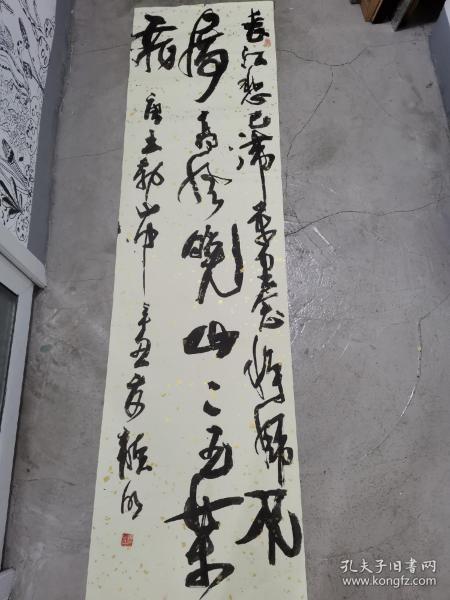 长江悲已滞萬里念将歸况
屬高风晚山々黄葉
飛
唐王勃山中辛丑
孔夫子旧书网
www.kongfz.com